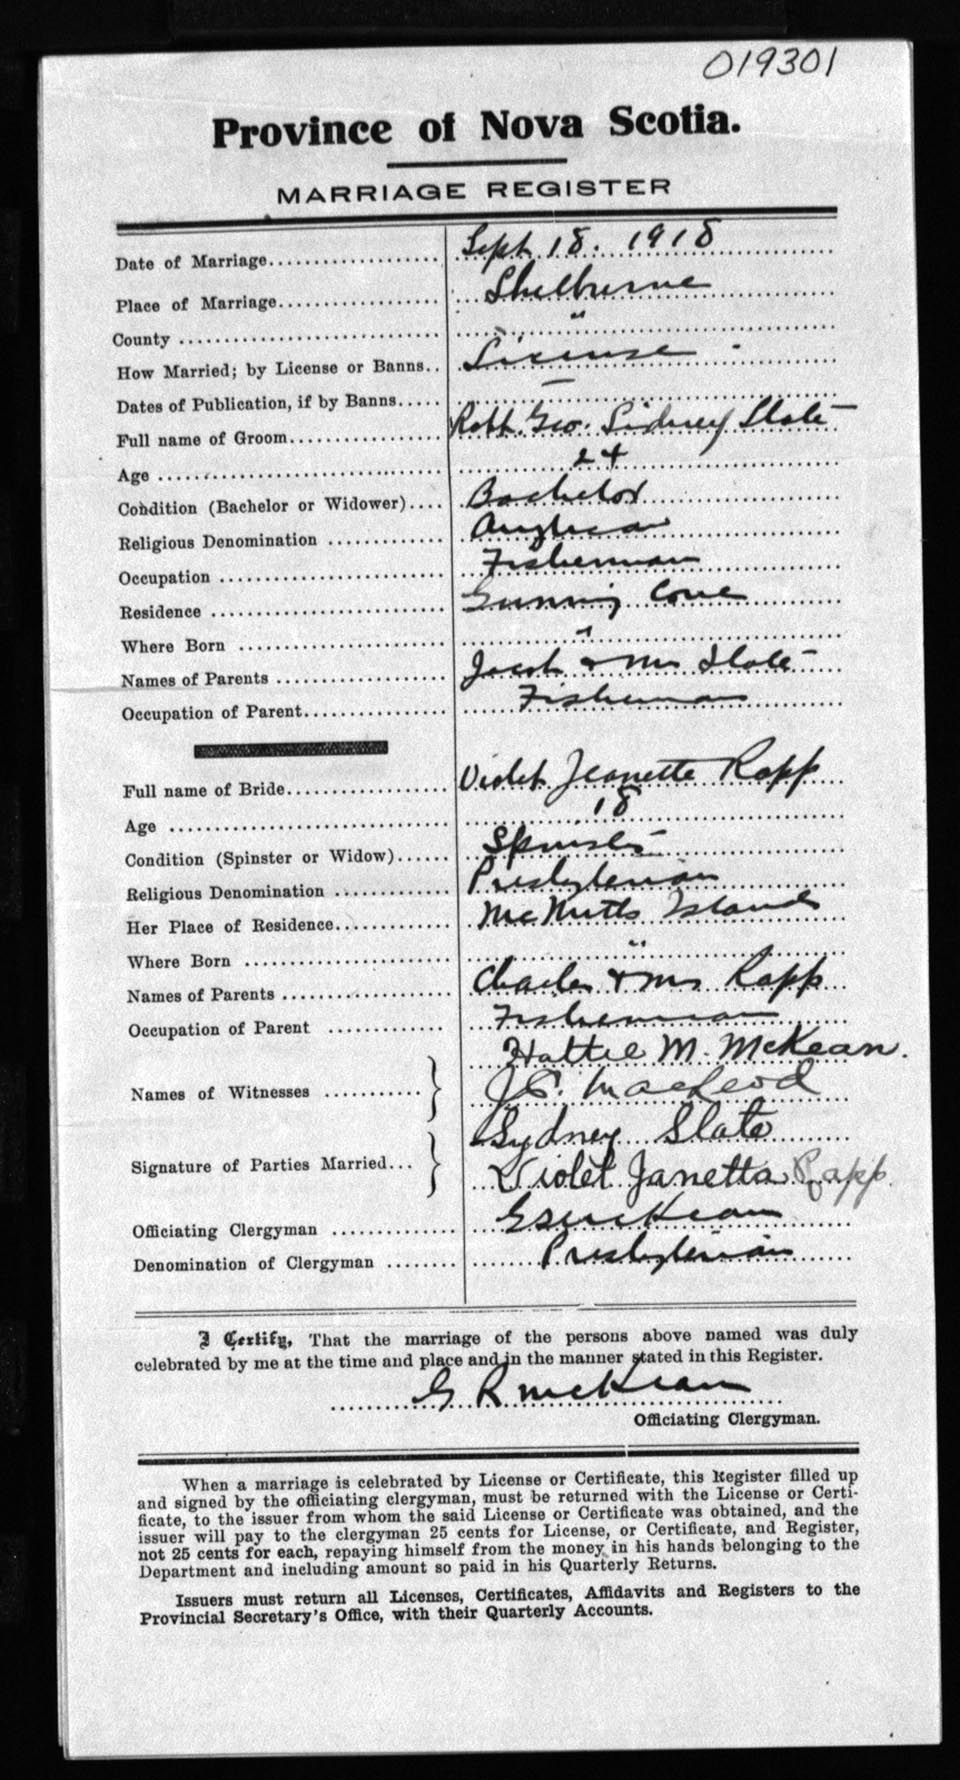 019301
Province of Nova Scotia.
MARRIAGE REGISTER
Date of Marriage.................... Sept 18. 1918
Place of Marriage.................. Shelburne
County .............................. "
How Married; by License or Banns.. License -
Dates of Publication, if by Banns..... —
Full name of Groom.................. Robt. Geo. Sidney Slate
Age ................................. 24
Condition (Bachelor or Widower).... Bachelor
Religious Denomination ............. Anglican
Occupation .......................... Fisherman
Residence ........................... Gunning Cove
Where Born ........................ "
Names of Parents ................... Jacob & Mrs Slate
Occupation of Parent................ Fisherman
Full name of Bride................... Violet Jeanette Rapp
Age ................................. 18
Condition (Spinster or Widow)...... Spinster
Religious Denomination ............. Presbyterian
Her Place of Residence............. McNutts Island
Where Born ........................ "
Names of Parents ................... Charles & Mrs Rapp
Occupation of Parent ............. Fisherman
Hattie M. McKean.
Names of Witnesses ........... J. MacLeod
Sydney Slate
Signature of Parties Married... Violet Janetta Rapp
Officiating Clergyman .............. G R McKean
Denomination of Clergyman ........ Presbyterian
I Certify, That the marriage of the persons above named was duly
celebrated by me at the time and place and in the manner stated in this Register.
G R McKean
Officiating Clergyman.
When a marriage is celebrated by License or Certificate, this Register filled up
and signed by the officiating clergyman, must be returned with the License or Certi-
ficate, to the issuer from whom the said License or Certificate was obtained, and the
issuer will pay to the clergyman 25 cents for License, or Certificate, and Register,
not 25 cents for each, repaying himself from the money in his hands belonging to the
Department and including amount so paid in his Quarterly Returns.
Issuers must return all Licenses, Certificates, Affidavits and Registers to the
Provincial Secretary's Office, with their Quarterly Accounts.